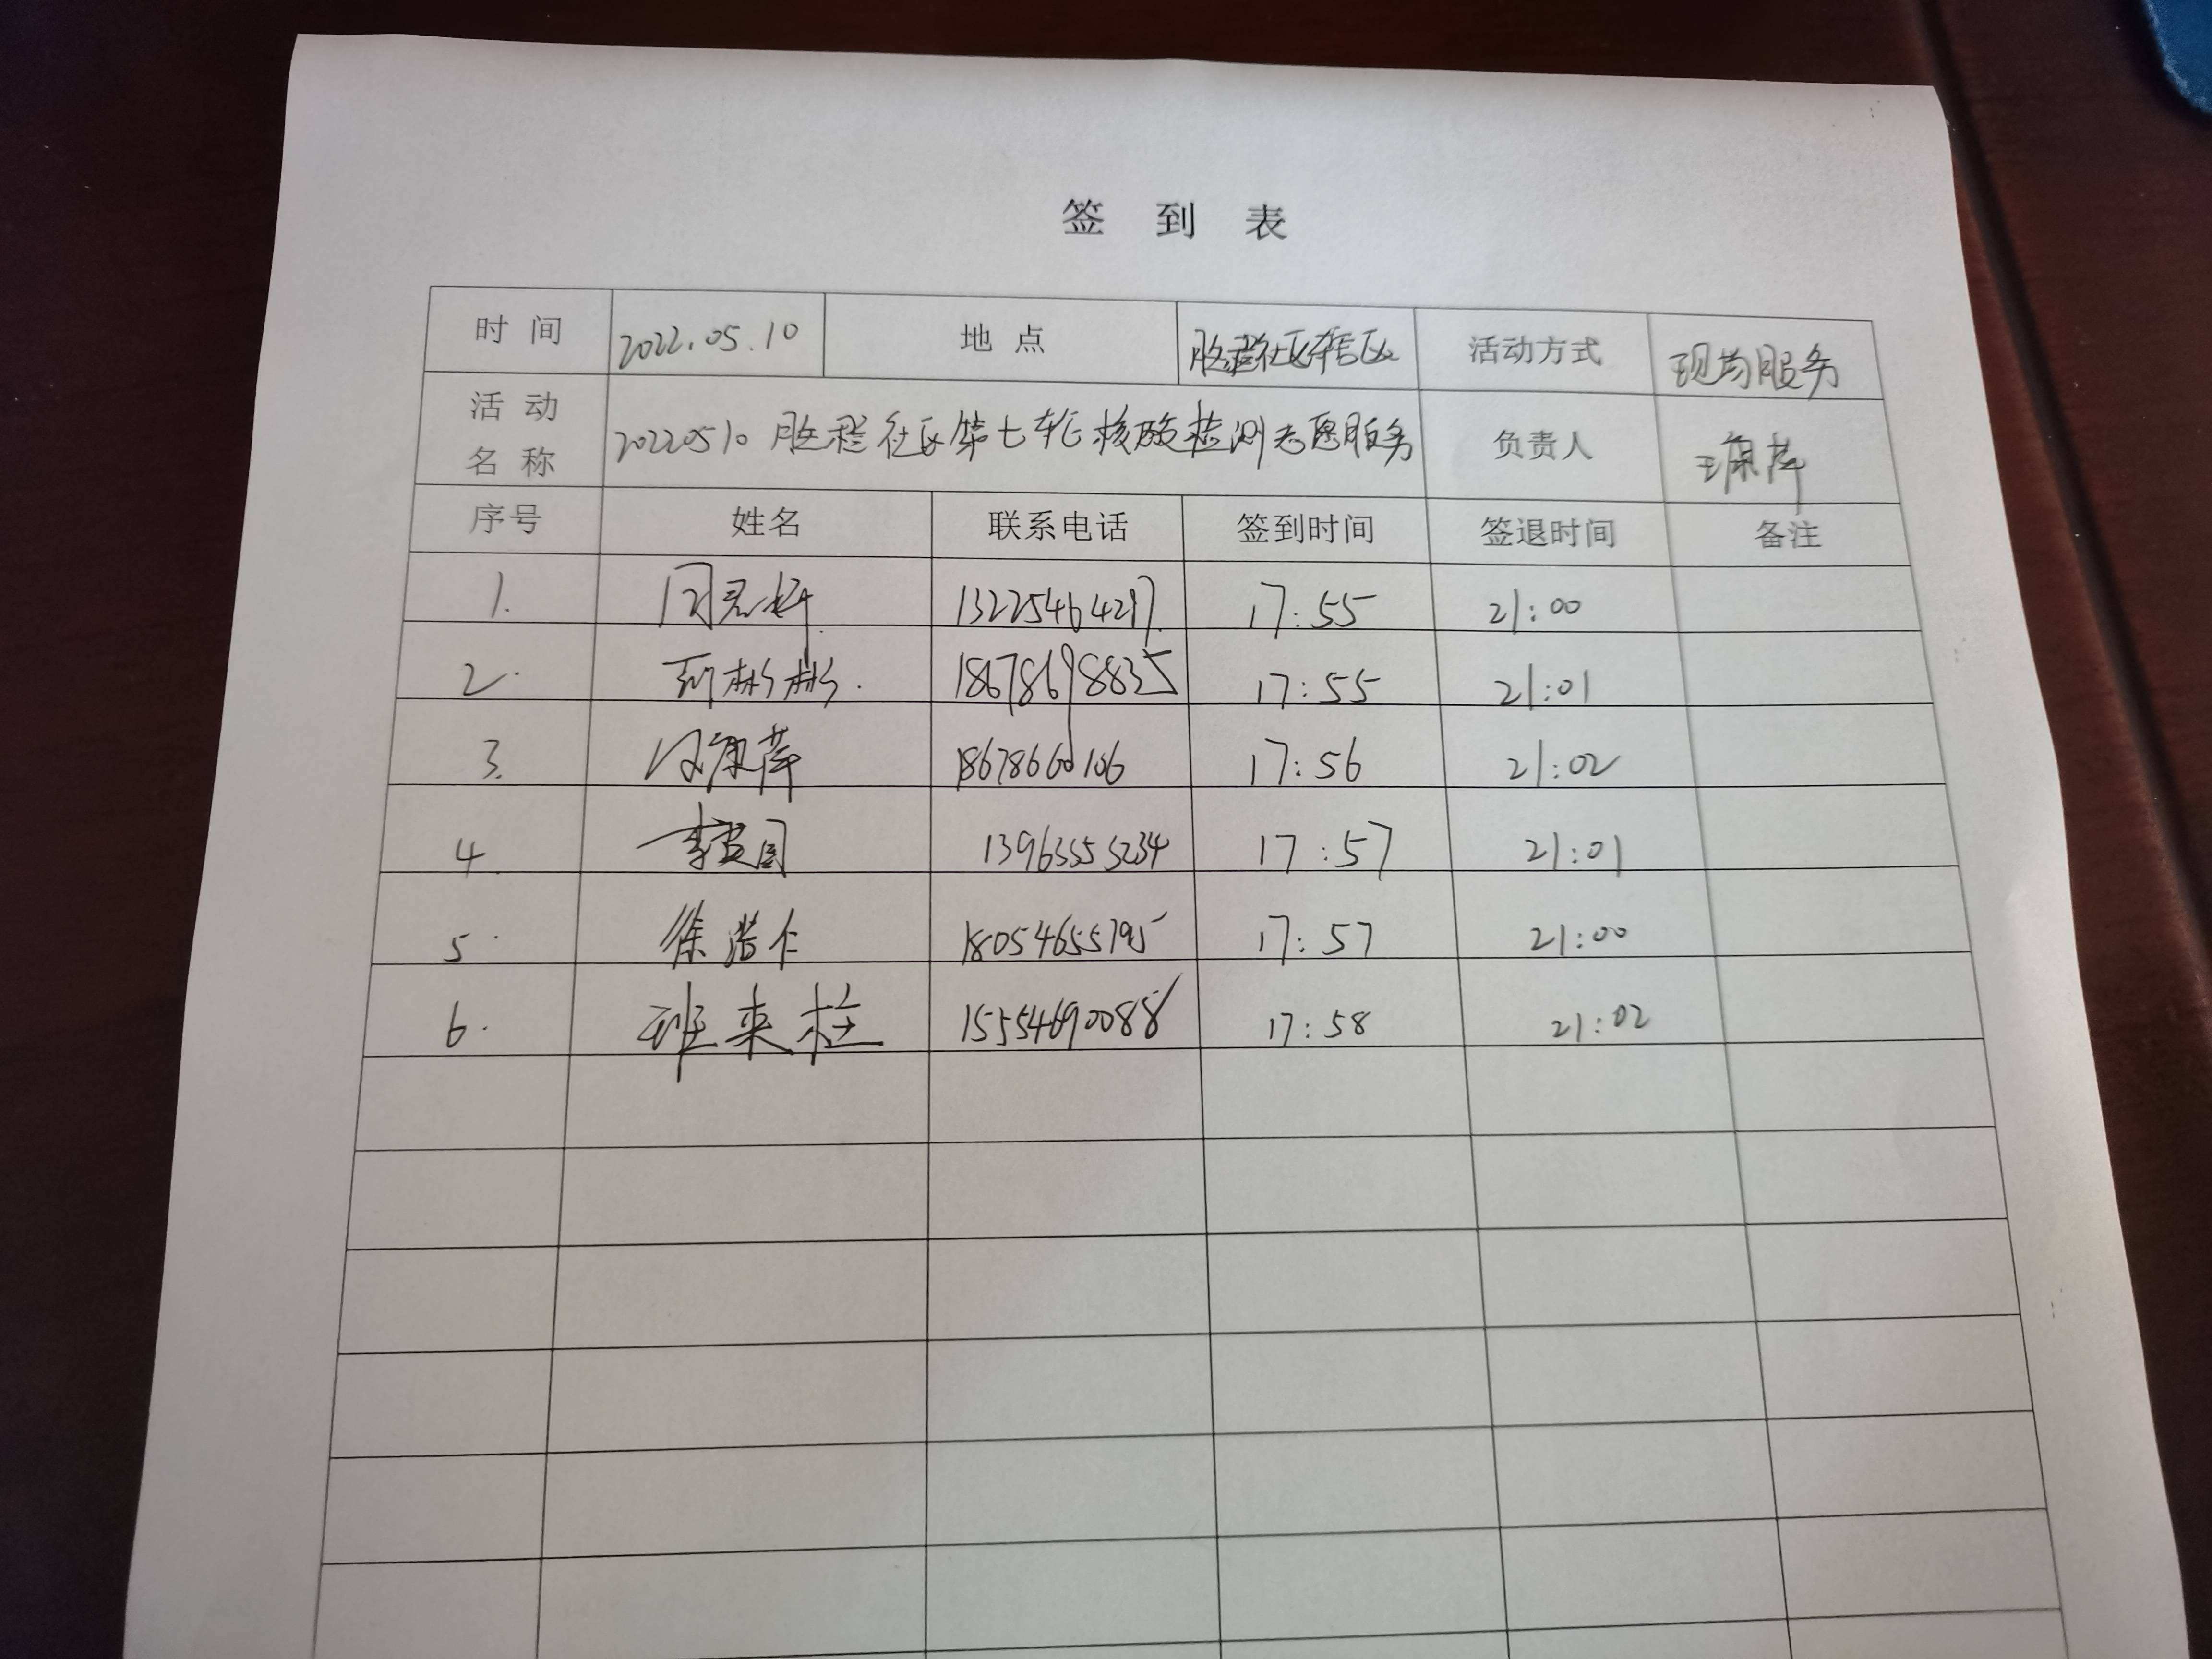 签 到 表
时 间 2022.05.10 地 点 胜利社区辖区 活动方式 现场服务
活 动 名 称 20220510 社区第七轮核酸检测志愿服务 负责人
序号 姓名 联系电话 签到时间 签退时间 备注
1. 13225464297 17:55 21:00
2. 彬彬. 18678698835 17:55 21:01
3. 18678660106 17:56 21:02
4. 李 13963555234 17:57 21:01
5. 徐浩仁 18054655795 17:57 21:00
6. 班来柱 15554690088 17:58 21:02